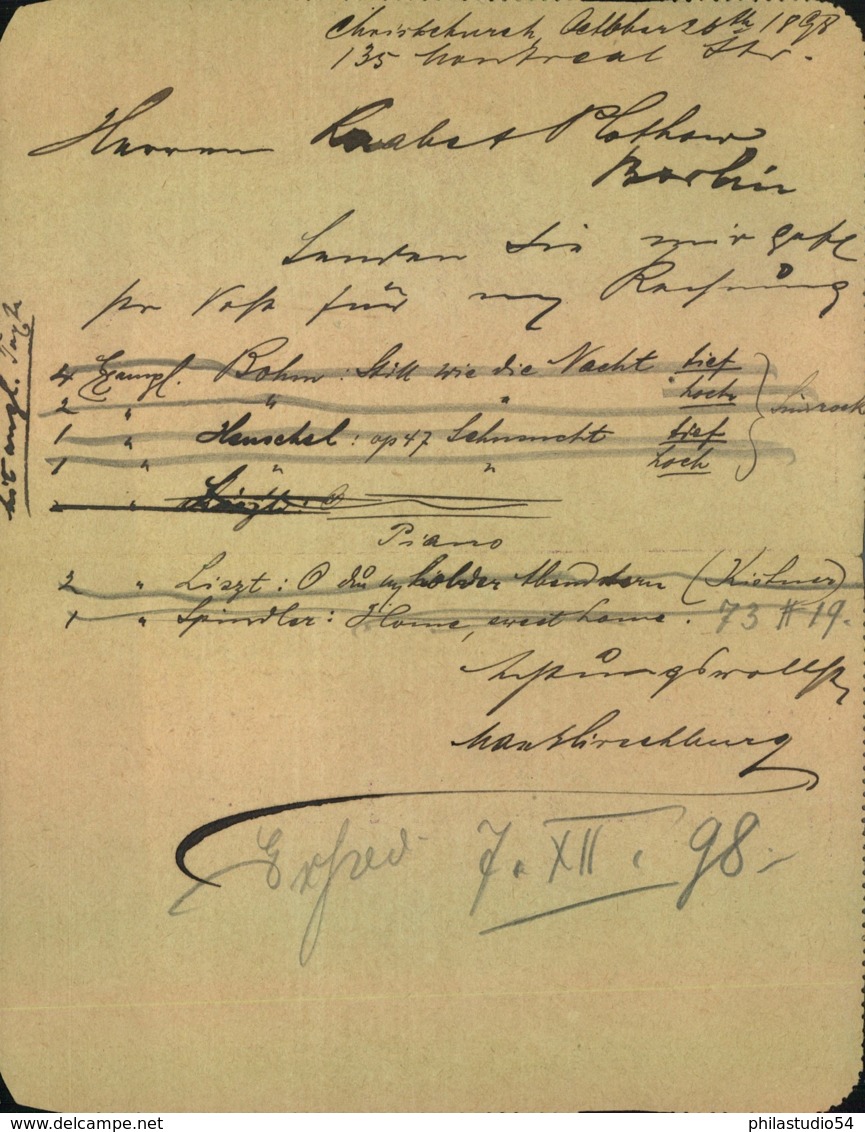 Christchurch, October 20th 1898
135 Montreal Str.
Herren Raabe & Plothow
Berlin
Senden Sie mir gefl
per Post für m/ Rechnung
4 Exempl. Bohm: Still wie die Nacht tief
2 " " " hoch
1 " Henschel: op 47 Sehnsucht tief
1 " " " hoch
} Simrock
mit engl. Text
" O
Piano
2 " Liszt: O du m/ holder Abendstern (Kistner)
1 " Spindler: Home, sweet home. 73 # 19.
Achtungsvollst
Max Hirschburg
7. XII. 98.
www.delcampe.net
philastudio54